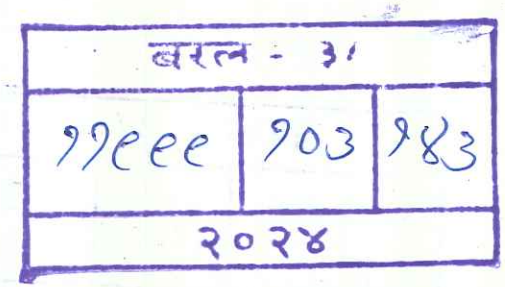 बरल - ३१
११९९९ १०३ १४३
२०२४